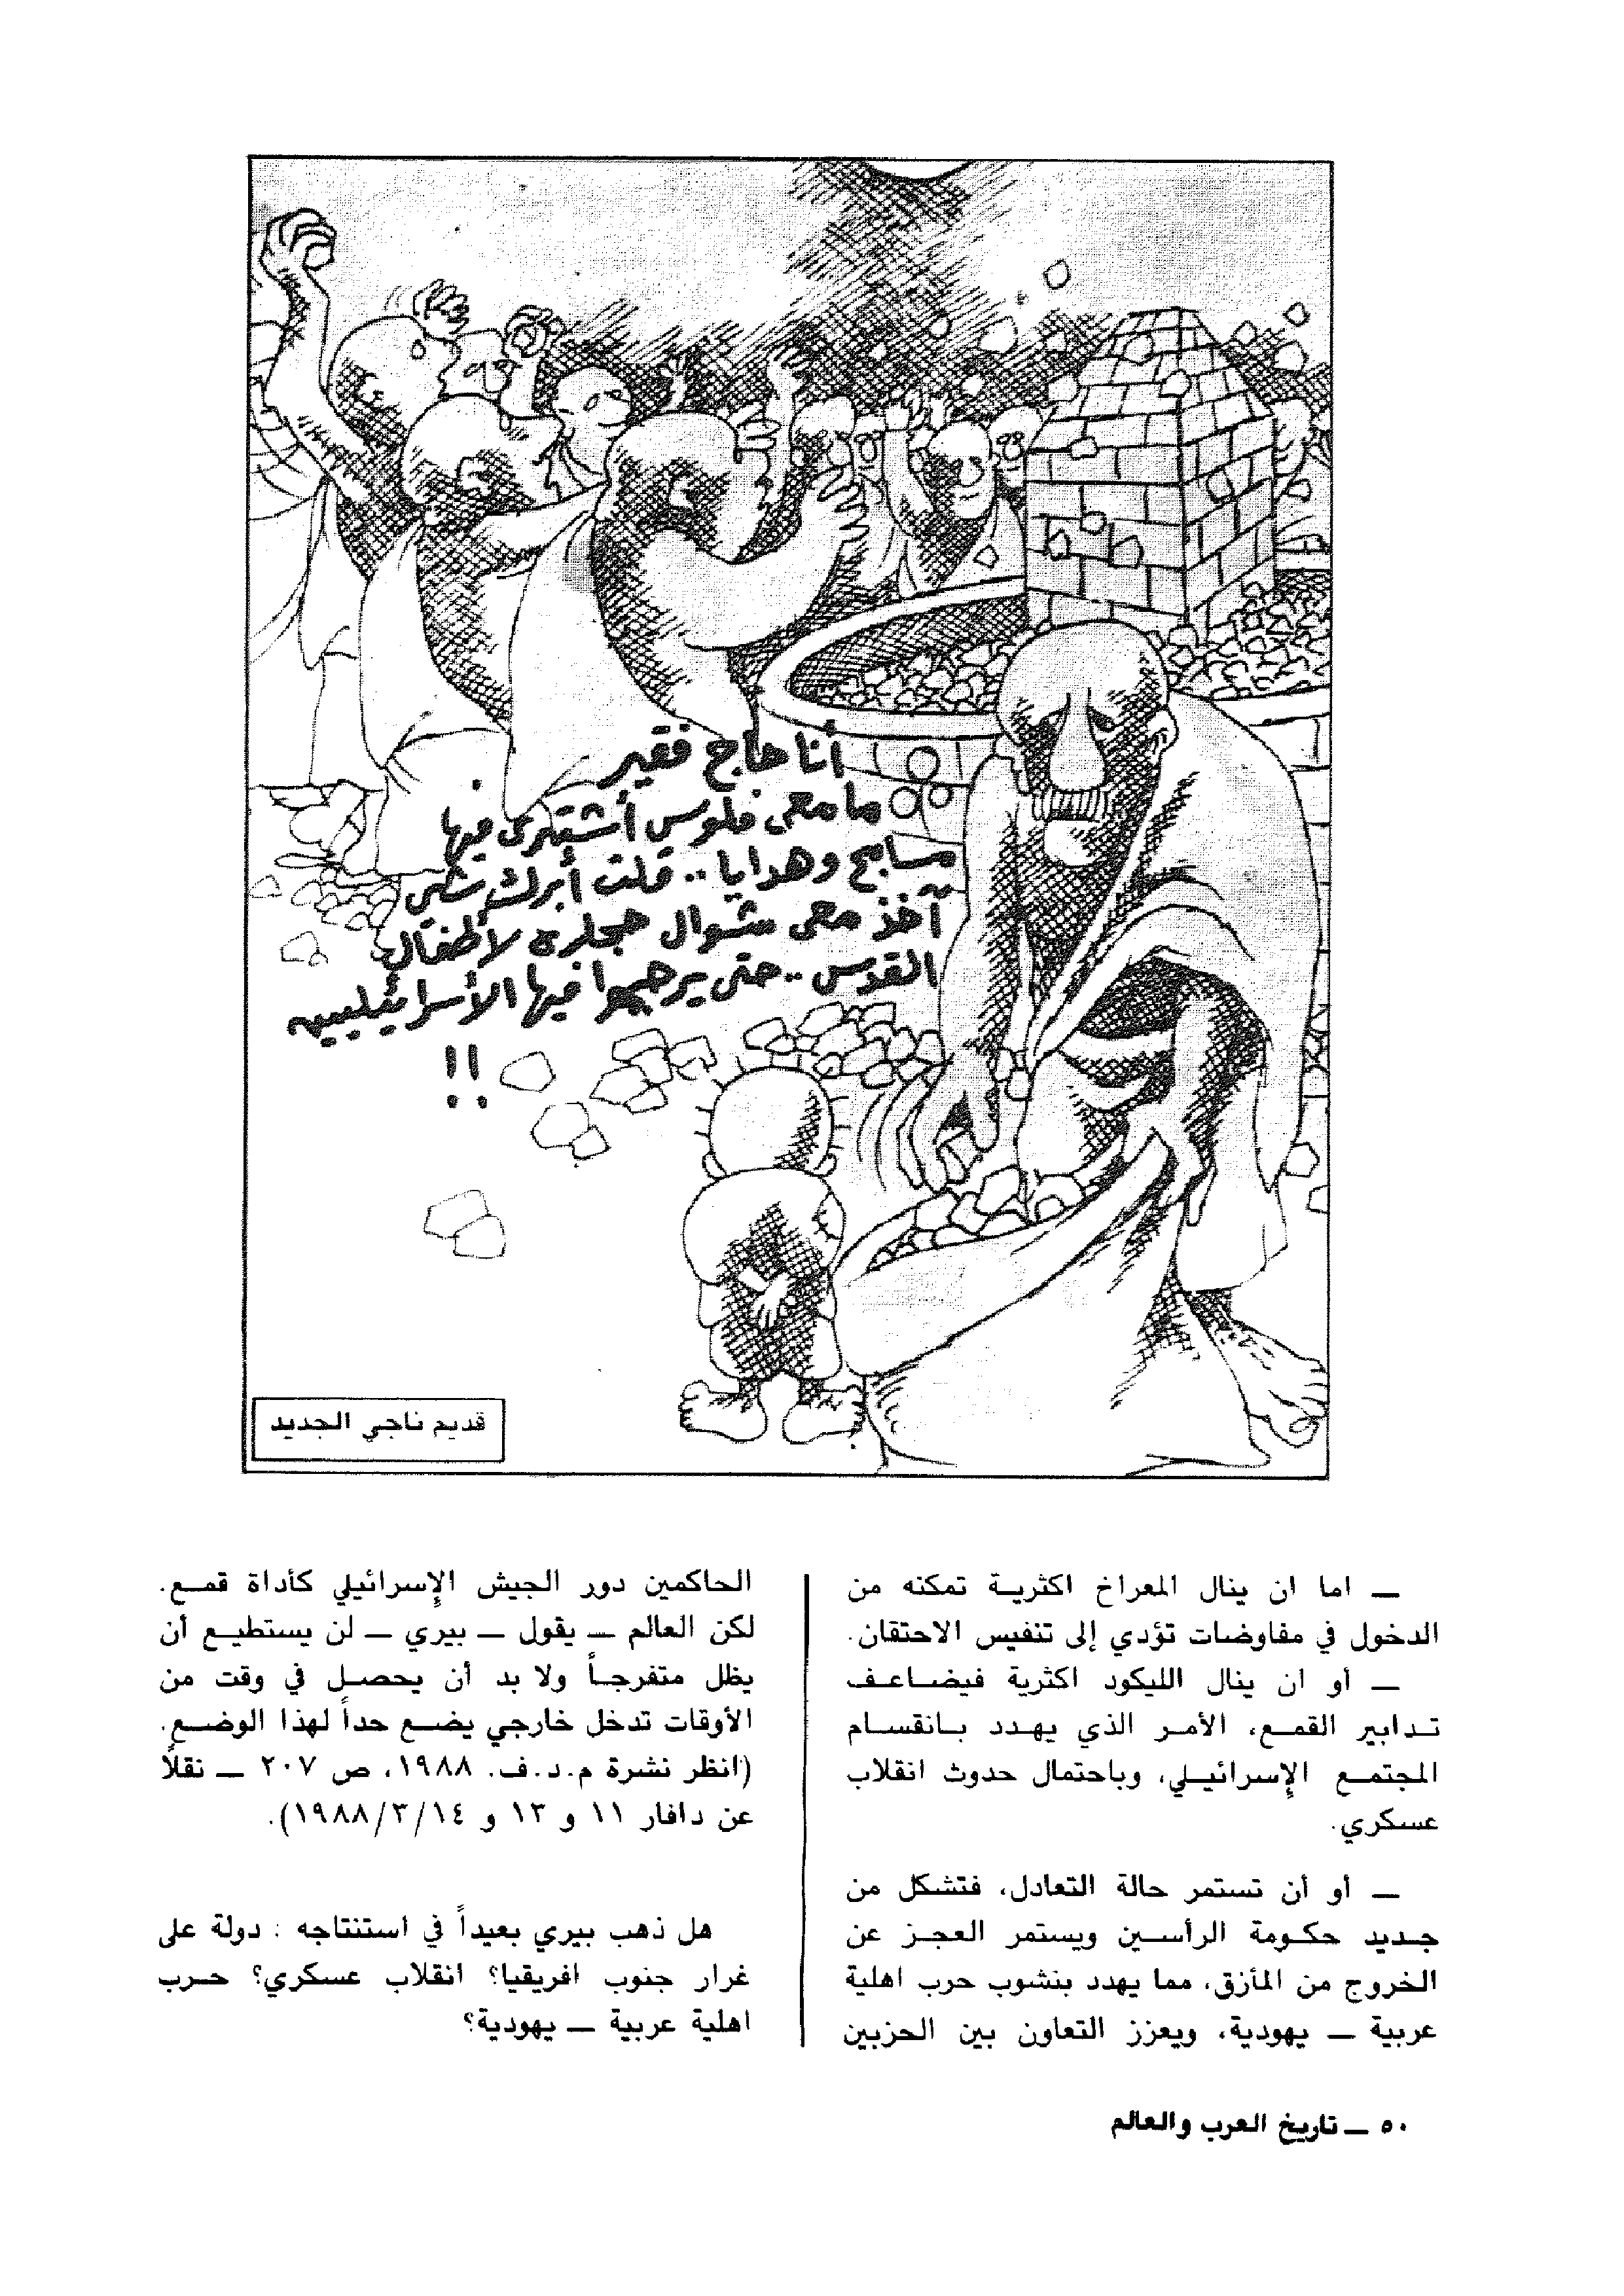 أنا حاج فقير
ما معي فلوس أشتري فيها
مسابح وهدايا .. قلت أبرك شي
آخذ معي شوال حجارة لأطفال
القدس .. حتى يرجموا فيها الأسرائيليين
!!
قديم ناجي الجديد
— اما ان ينال المعراخ اكثرية تمكنه من
الدخول في مفاوضات تؤدي إلى تنفيس الاحتقان.
— أو ان ينال الليكود اكثرية فيضاعف
تدابير القمع، الأمر الذي يهدد بانقسام
المجتمع الإسرائيلي، وباحتمال حدوث انقلاب
عسكري.
— أو أن تستمر حالة التعادل، فتشكل من
جديد حكومة الرأسين ويستمر العجز عن
الخروج من المأزق، مما يهدد بنشوب حرب اهلية
عربية — يهودية، ويعزز التعاون بين الحزبين
الحاكمين دور الجيش الإسرائيلي كأداة قمع.
لكن العالم — يقول — بيري — لن يستطيع أن
يظل متفرجاً ولا بد أن يحصل في وقت من
الأوقات تدخل خارجي يضع حداً لهذا الوضع.
(انظر نشرة م.د.ف. ١٩٨٨، ص ٢٠٧ — نقلاً
عن دافار ١١ و ١٣ و ١٤/٣/١٩٨٨).
هل ذهب بيري بعيداً في استنتاجه : دولة على
غرار جنوب افريقيا؟ انقلاب عسكري؟ حرب
اهلية عربية — يهودية؟
٥٠ — تاريخ العرب والعالم